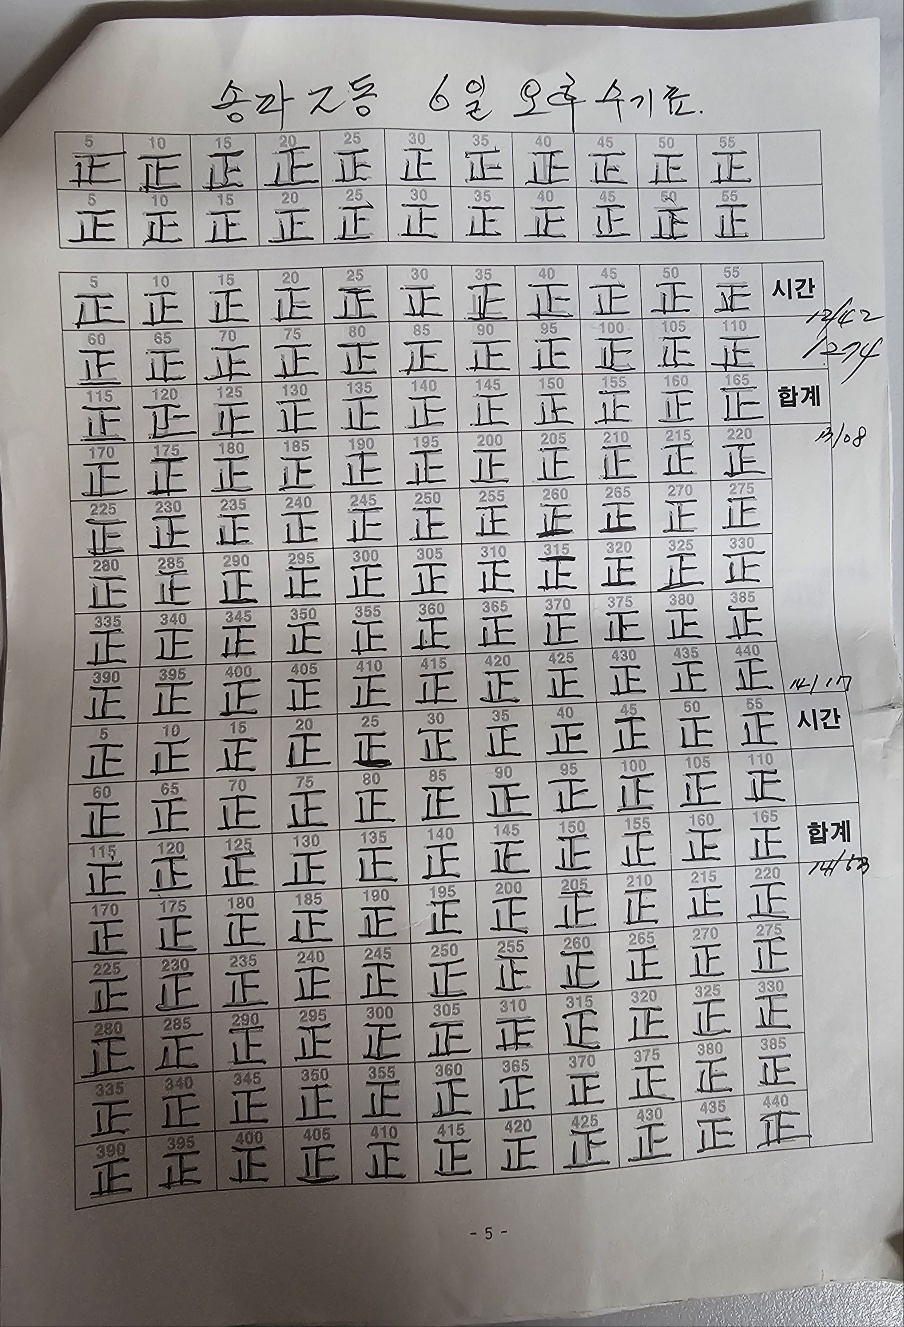 송파 2동 6일 오후 수기표.
5 10 15 20 25 30 35 40 45 50 55
正 正 正 正 正 正 正 正 正 正 正
5 10 15 20 25 30 35 40 45 50 55
正 正 正 正 正 正 正 正 正 正 正
5 10 15 20 25 30 35 40 45 50 55 시간
正 正 正 正 正 正 正 正 正 正 正
13/42
60 65 70 75 80 85 90 95 100 105 110
正 正 正 正 正 正 正 正 正 正 正
1274
115 120 125 130 135 140 145 150 155 160 165 합계
正 正 正 正 正 正 正 正 正 正 正
13/08
170 175 180 185 190 195 200 205 210 215 220
正 正 正 正 正 正 正 正 正 正 正
225 230 235 240 245 250 255 260 265 270 275
正 正 正 正 正 正 正 正 正 正 正
280 285 290 295 300 305 310 315 320 325 330
正 正 正 正 正 正 正 正 正 正 正
335 340 345 350 355 360 365 370 375 380 385
正 正 正 正 正 正 正 正 正 正 正
390 395 400 405 410 415 420 425 430 435 440
正 正 正 正 正 正 正 正 正 正 正
14/17
5 10 15 20 25 30 35 40 45 50 55 시간
正 正 正 正 正 正 正 正 正 正 正
60 65 70 75 80 85 90 95 100 105 110
正 正 正 正 正 正 正 正 正 正 正
115 120 125 130 135 140 145 150 155 160 165 합계
正 正 正 正 正 正 正 正 正 正 正
170 175 180 185 190 195 200 205 210 215 220
正 正 正 正 正 正 正 正 正 正 正
225 230 235 240 245 250 255 260 265 270 275
正 正 正 正 正 正 正 正 正 正 正
280 285 290 295 300 305 310 315 320 325 330
正 正 正 正 正 正 正 正 正 正 正
335 340 345 350 355 360 365 370 375 380 385
正 正 正 正 正 正 正 正 正 正 正
390 395 400 405 410 415 420 425 430 435 440
正 正 正 正 正 正 正 正 正 正 正
- 5 -